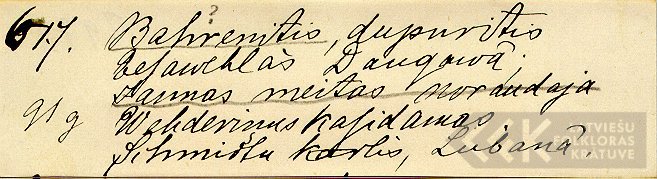 ?
617. Bahrenitis, dupuritis
besawehlâs Daugawâ;
Jaunas meitas noraudaja
919 Wehderinus kasidamas.
Schmidtu Karlis, Lubanâ.
LATVIEŠU
FOLKLORAS
KRĀTUVE